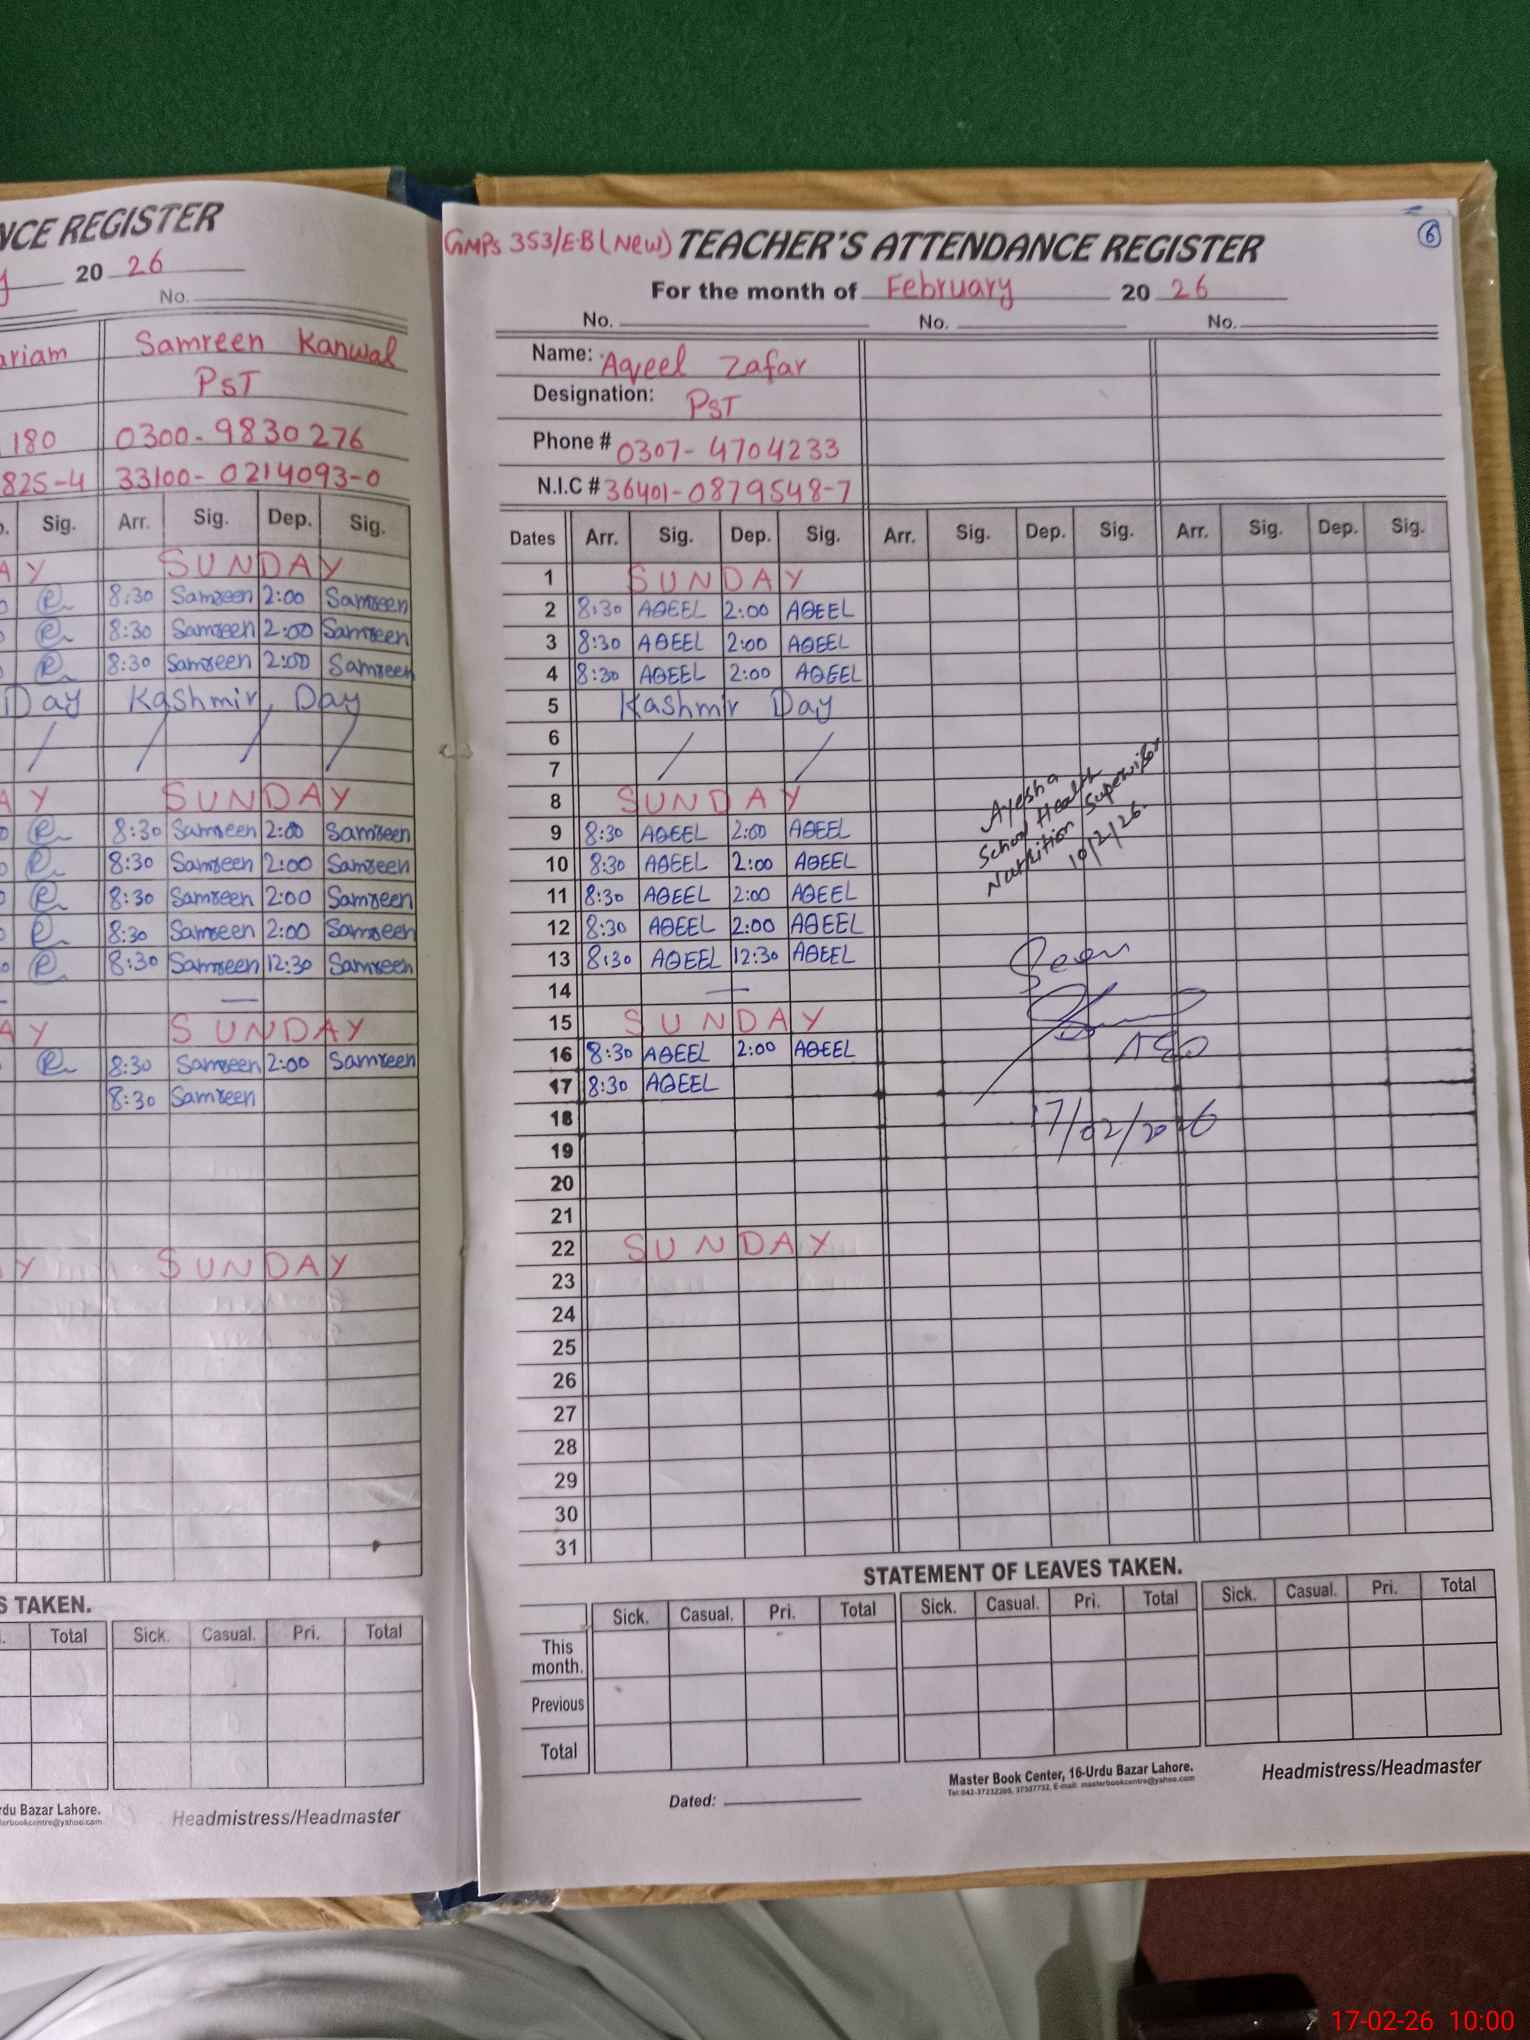 NCE REGISTER
20 26
No.
ariam Samreen Kanwal
PST
180 0300-9830276
825-4 33100-0214093-0
Sig. Arr. Sig. Dep. Sig.
A Y SUNDAY
8:30 Samreen 2:00 Samreen
8:30 Samreen 2:00 Samreen
8:30 Samreen 2:00 Samreen
Day Kashmir Day
A Y SUNDAY
8:30 Samreen 2:00 Samreen
8:30 Samreen 2:00 Samreen
8:30 Samreen 2:00 Samreen
8:30 Samreen 2:00 Samreen
8:30 Samreen 12:30 Samreen
—
A Y SUNDAY
8:30 Samreen 2:00 Samreen
8:30 Samreen
Y SUNDAY
S TAKEN.
Total Sick. Casual. Pri. Total
rdu Bazar Lahore.
Headmistress/Headmaster
GMPS 353/E.B (New) TEACHER'S ATTENDANCE REGISTER
6
For the month of February 20 26
No. No. No.
Name: Aqeel Zafar
Designation: PST
Phone # 0307-4704233
N.I.C # 36401-0879548-7
Dates Arr. Sig. Dep. Sig. Arr. Sig. Dep. Sig. Arr. Sig. Dep. Sig.
1 SUNDAY
2 8:30 AQEEL 2:00 AQEEL
3 8:30 AQEEL 2:00 AQEEL
4 8:30 AQEEL 2:00 AQEEL
5 Kashmir Day
6
7
8 SUNDAY
9 8:30 AQEEL 2:00 AQEEL
10 8:30 AQEEL 2:00 AQEEL
11 8:30 AQEEL 2:00 AQEEL
12 8:30 AQEEL 2:00 AQEEL
13 8:30 AQEEL 12:30 AQEEL
14 —
15 SUNDAY
16 8:30 AQEEL 2:00 AQEEL
17 8:30 AQEEL
18
19
20
21
22 SUNDAY
23
24
25
26
27
28
29
30
31
Ayesha
School Health
Nutrition Supervisor
10/2/26.
Seen
AEO
17/02/2026
STATEMENT OF LEAVES TAKEN.
Sick. Casual. Pri. Total Sick. Casual. Pri. Total Sick. Casual. Pri. Total
This
month.
Previous
Total
Master Book Center, 16-Urdu Bazar Lahore.
Headmistress/Headmaster
Dated:
17-02-26 10:00